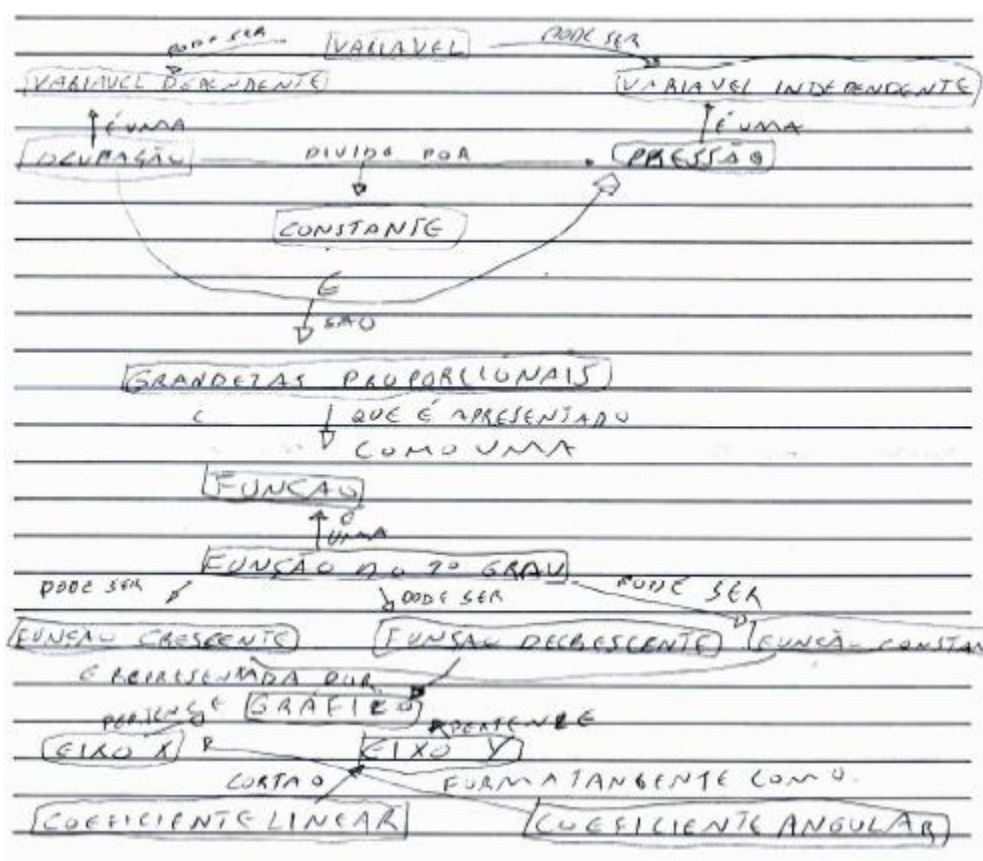 PODE SER VARIAVEL PODE SER
VARIAVEL DEPENDENTE VARIAVEL INDEPENDENTE
É UMA É UMA
OCUPAÇÃO DIVIDO POR PRESSÃO
CONSTANTE
E
SÃO
GRANDEZAS PROPORCIONAIS
QUE É APRESENTADO
COMO UMA
FUNCAO
É
UMA
FUNÇÃO DO 1º GRAU
PODE SER PODE SER PODE SER
FUNÇÃO CRESCENTE FUNSAO DECRESCENTE FUNÇÃO CONSTAN
E REPRESENTADA POR
PERTENCE GRÁFICO PERTENCE
EIXO X EIXO Y
CORTA O FORMA TANGENTE COM O
COEFICIENTE LINEAR COEFICIENTE ANGULAR